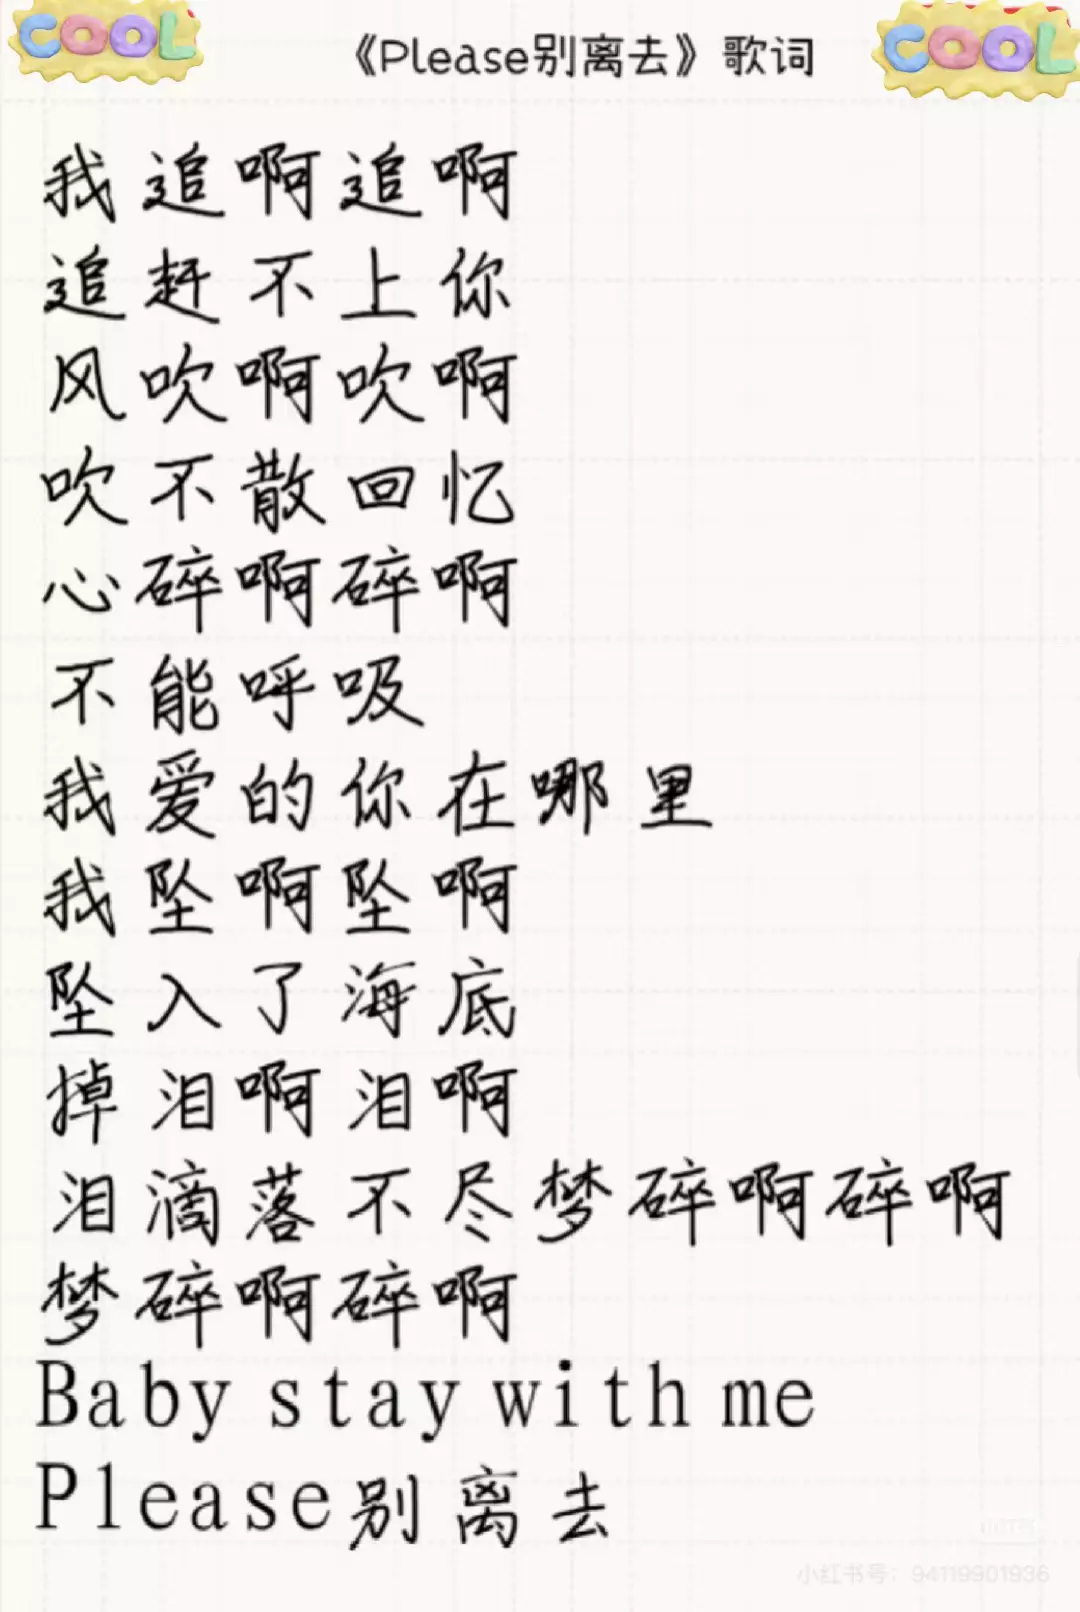 COOL
《Please别离去》歌词
COOL
我追啊追啊
追赶不上你
风吹啊吹啊
吹不散回忆
心碎啊碎啊
不能呼吸
我爱的你在哪里
我坠啊坠啊
坠入了海底
掉泪啊泪啊
泪滴落不尽梦碎啊碎啊
梦碎啊碎啊
Baby stay with me
Please别离去
小红书
小红书号：94119901936